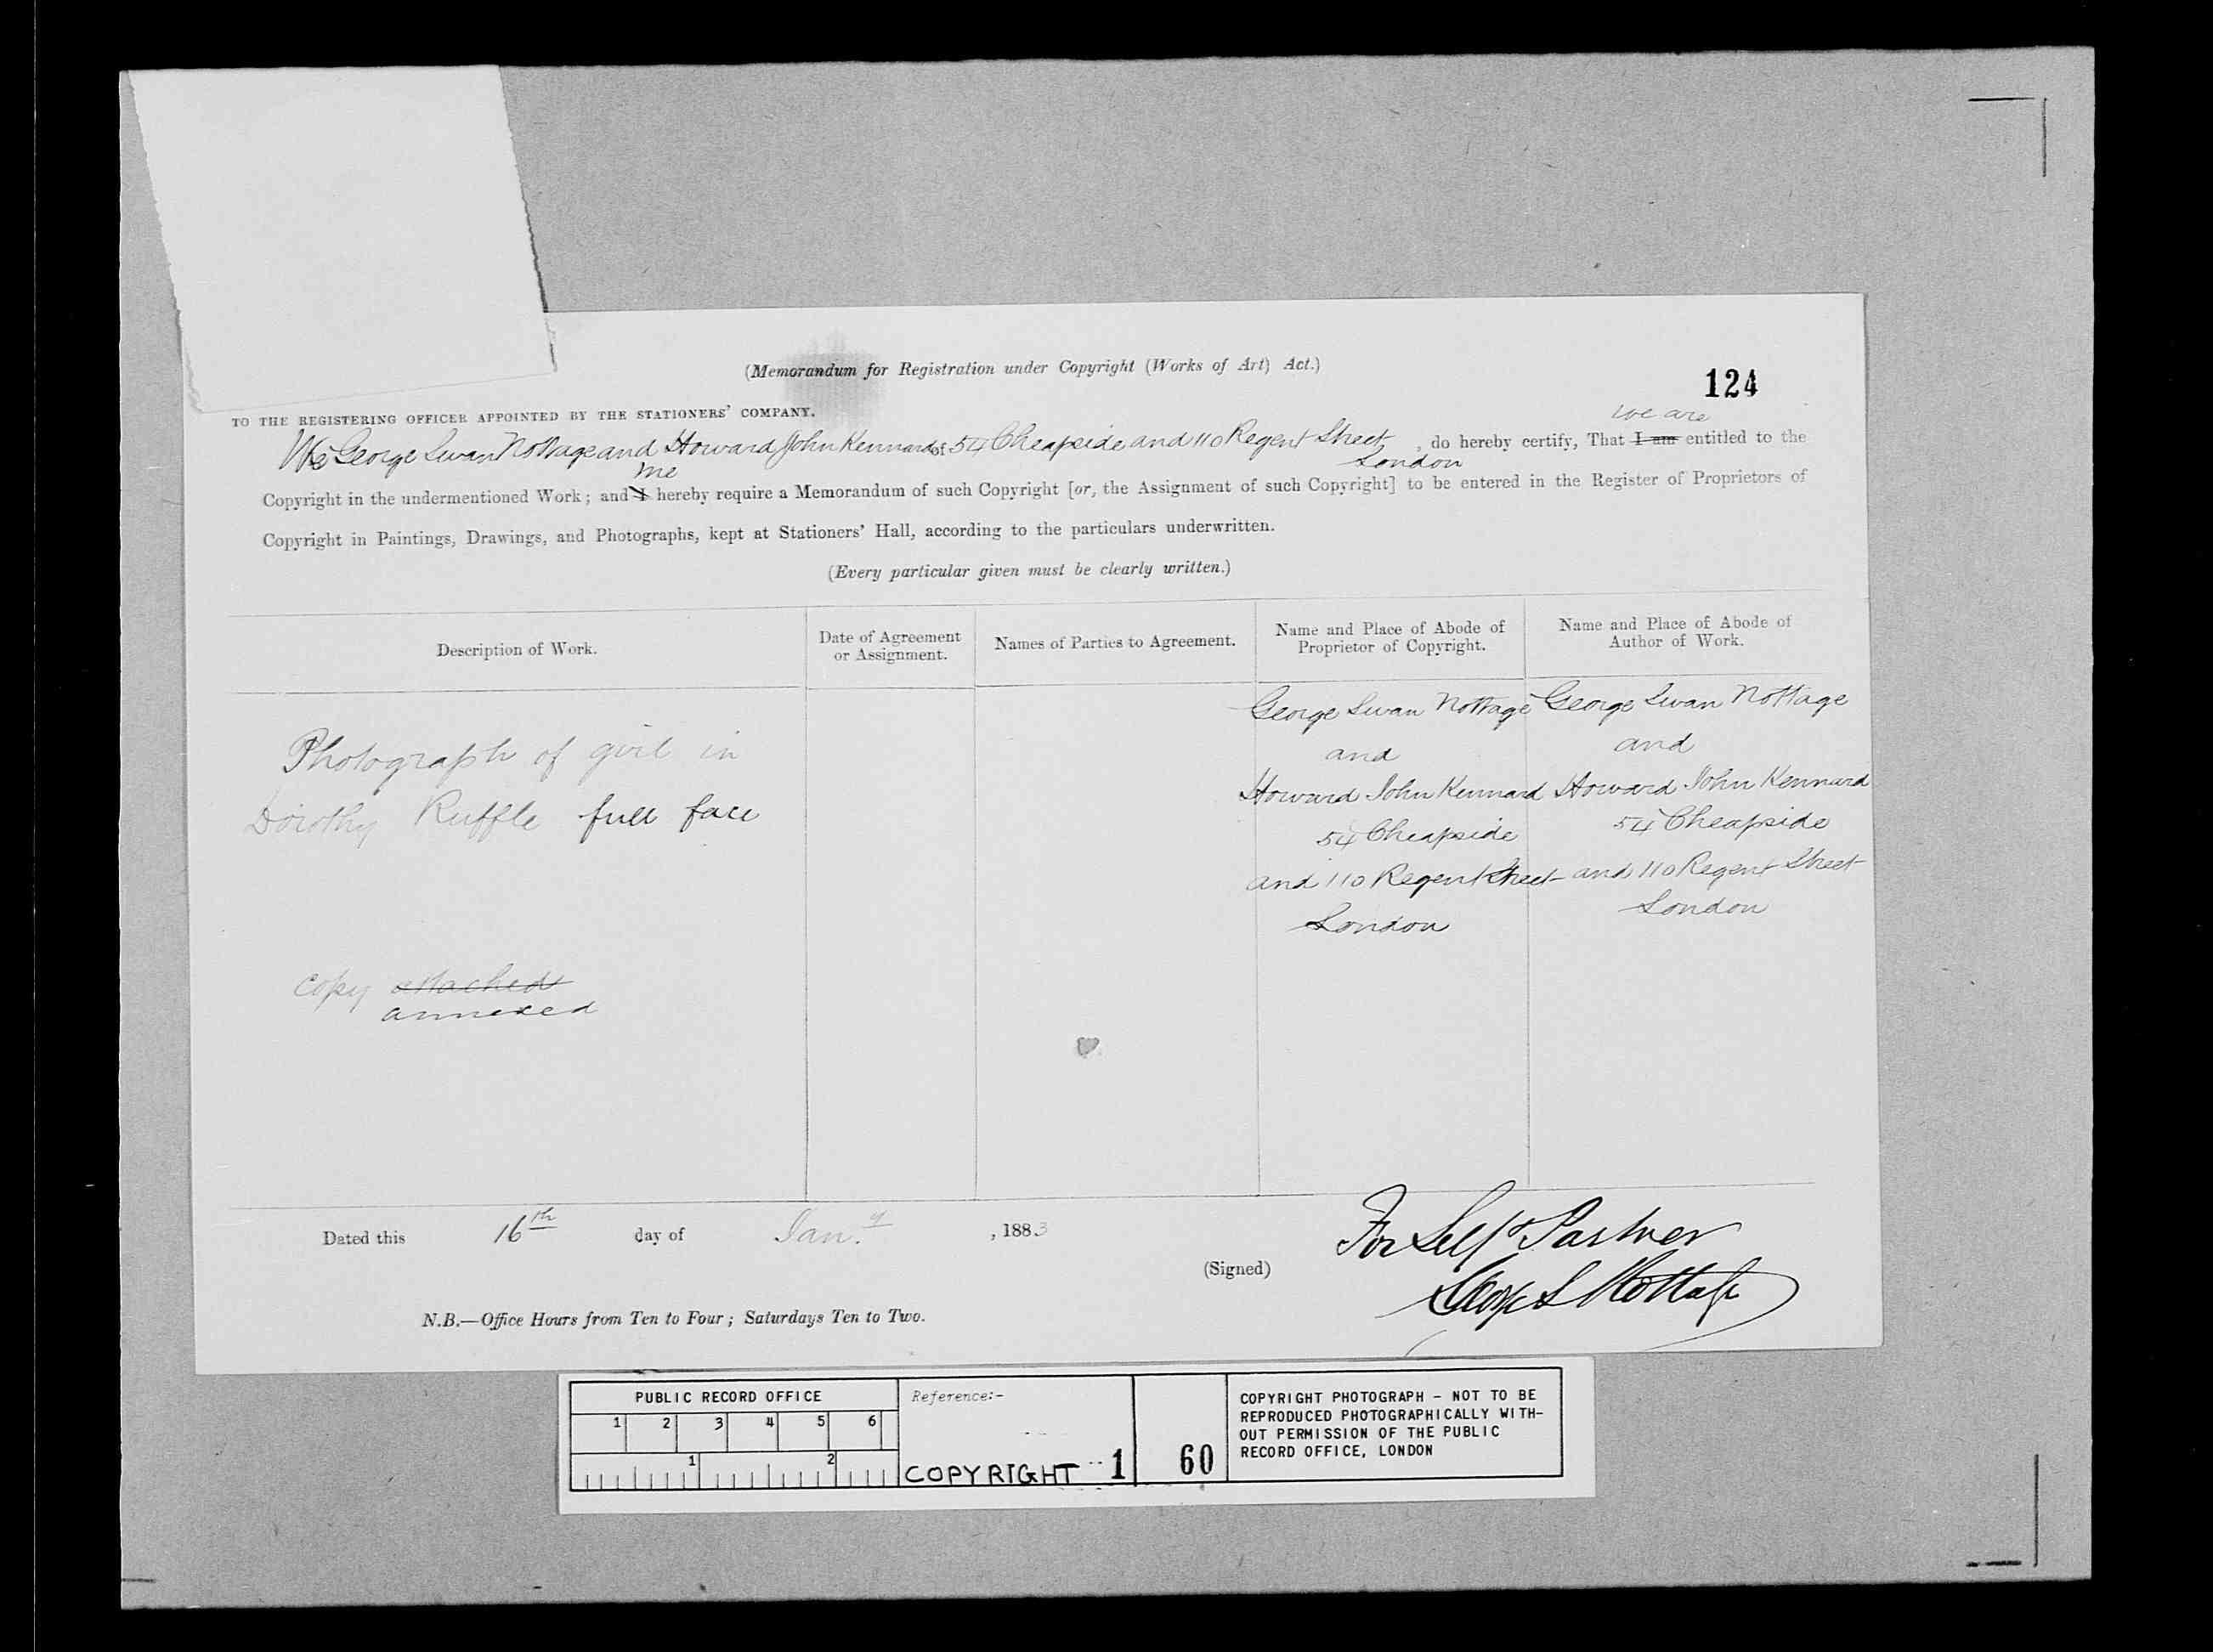 (Memorandum for Registration under Copyright (Works of Art) Act.)
124
TO THE REGISTERING OFFICER APPOINTED BY THE STATIONERS' COMPANY.
we are
We George Swan Nottage and Howard John Kennard of 54 Cheapside and 110 Regent Street, do hereby certify, That I am entitled to the
London
we
Copyright in the undermentioned Work; and I hereby require a Memorandum of such Copyright [or, the Assignment of such Copyright] to be entered in the Register of Proprietors of
Copyright in Paintings, Drawings, and Photographs, kept at Stationers' Hall, according to the particulars underwritten.
(Every particular given must be clearly written.)
Description of Work.
Date of Agreement
or Assignment.
Names of Parties to Agreement.
Name and Place of Abode of
Proprietor of Copyright.
Name and Place of Abode of
Author of Work.
Photograph of girl in
Dorothy Ruffle full face
copy attached
annexed
George Swan Nottage
and
Howard John Kennard
54 Cheapside
and 110 Regent Street
London
George Swan Nottage
and
Howard John Kennard
54 Cheapside
and 110 Regent Street
London
Dated this 16th day of Jan.y, 1883
(Signed)
For Self & Partner
George S Nottage
N.B.—Office Hours from Ten to Four; Saturdays Ten to Two.
PUBLIC RECORD OFFICE
1 2 3 4 5 6
1 2
Reference:-
COPYRIGHT 1
60
COPYRIGHT PHOTOGRAPH - NOT TO BE
REPRODUCED PHOTOGRAPHICALLY WITH-
OUT PERMISSION OF THE PUBLIC
RECORD OFFICE, LONDON